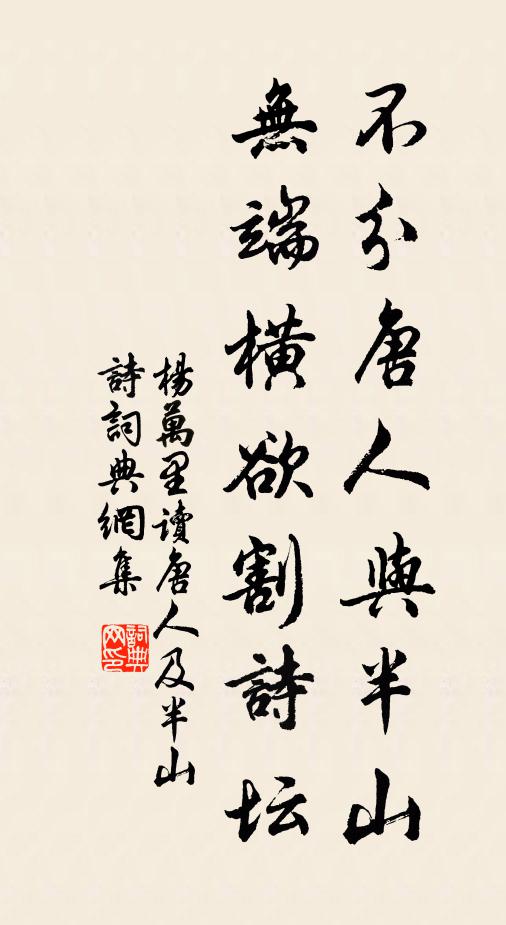 不分唐人與半山
無端橫欲割詩坛
楊萬里讀唐人及半山
詩詞典網集
詞典網印